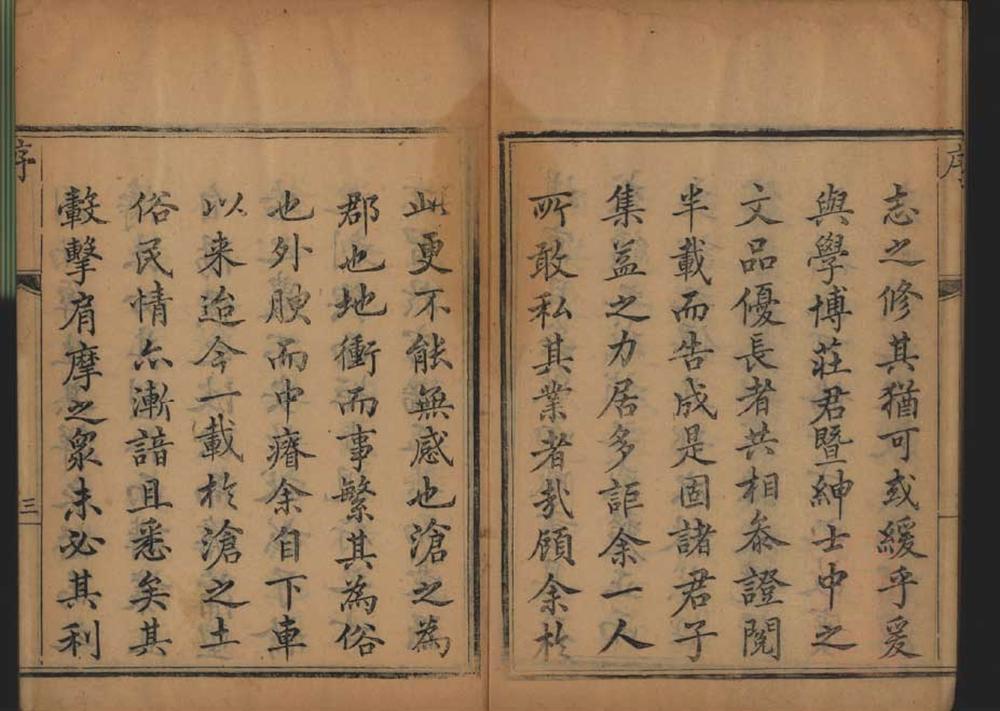 序
志之修其猶可或緩乎爰
與學博莊君暨紳士中之
文品優長者共相叅證閱
半載而告成是固諸君子
集益之力居多詎余一人
所敢私其業者㢤顧余於
此更不能無感也滄之為
郡也地衝而事繁其為俗
也外腴而中瘠余自下車
以来迨今一載於滄之土
俗民情亦漸諳且悉矣其
轂擊肩摩之衆未必其利
序
三